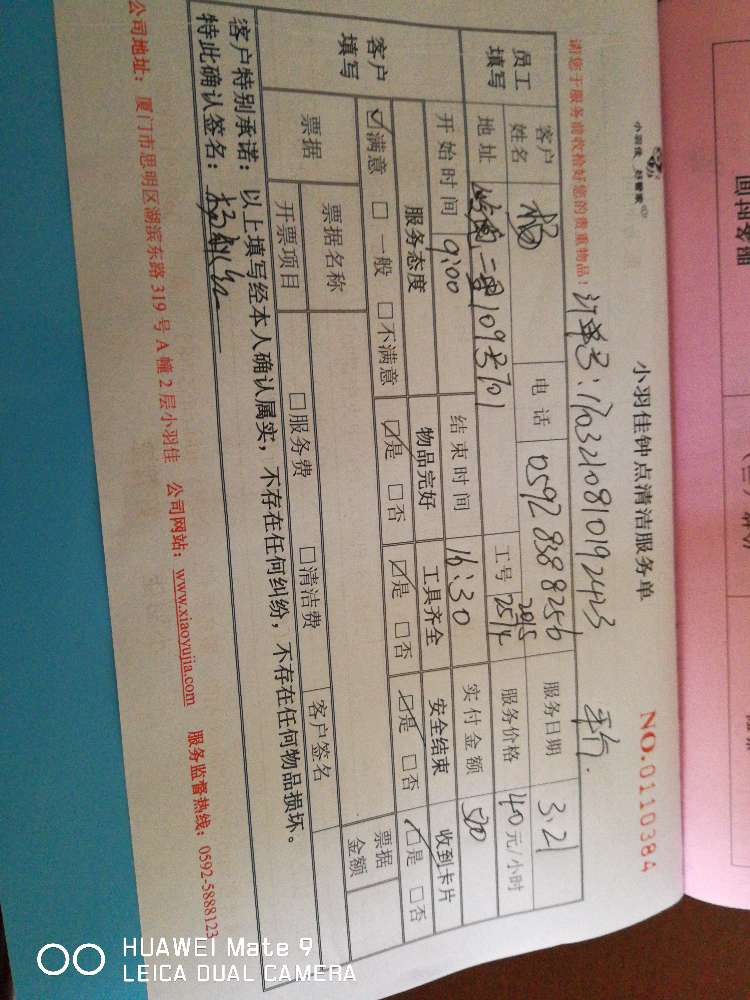 小羽佳 好管家
小羽佳钟点清洁服务单
NO.0110384
请您于服务前收拾好您的贵重物品！
订单号：1703210810192423
员工填写
客户姓名 杨
电话 0592 8388256
服务日期 3.21
地址 二里109号701
工号 2015 2514
服务价格 40元/小时
客户填写
开始时间 9:00
结束时间 16:30
实付金额 500
服务态度 物品完好 工具齐全 安全结束 收到卡片
☑满意 □一般 □不满意 ☑是 □否 ☑是 □否 ☑是 □否 ☑是 □否
票据 票据名称 票据金额
开票项目 □服务费 □清洁费 客户签名
客户特别承诺：以上填写经本人确认属实，不存在任何纠纷，不存在任何物品损坏。
特此确认签名：杨
公司地址：厦门市思明区湖滨东路319号A幢2层小羽佳 公司网站：www.xiaoyujia.com 服务监督热线：0592-5888123
HUAWEI Mate 9
LEICA DUAL CAMERA